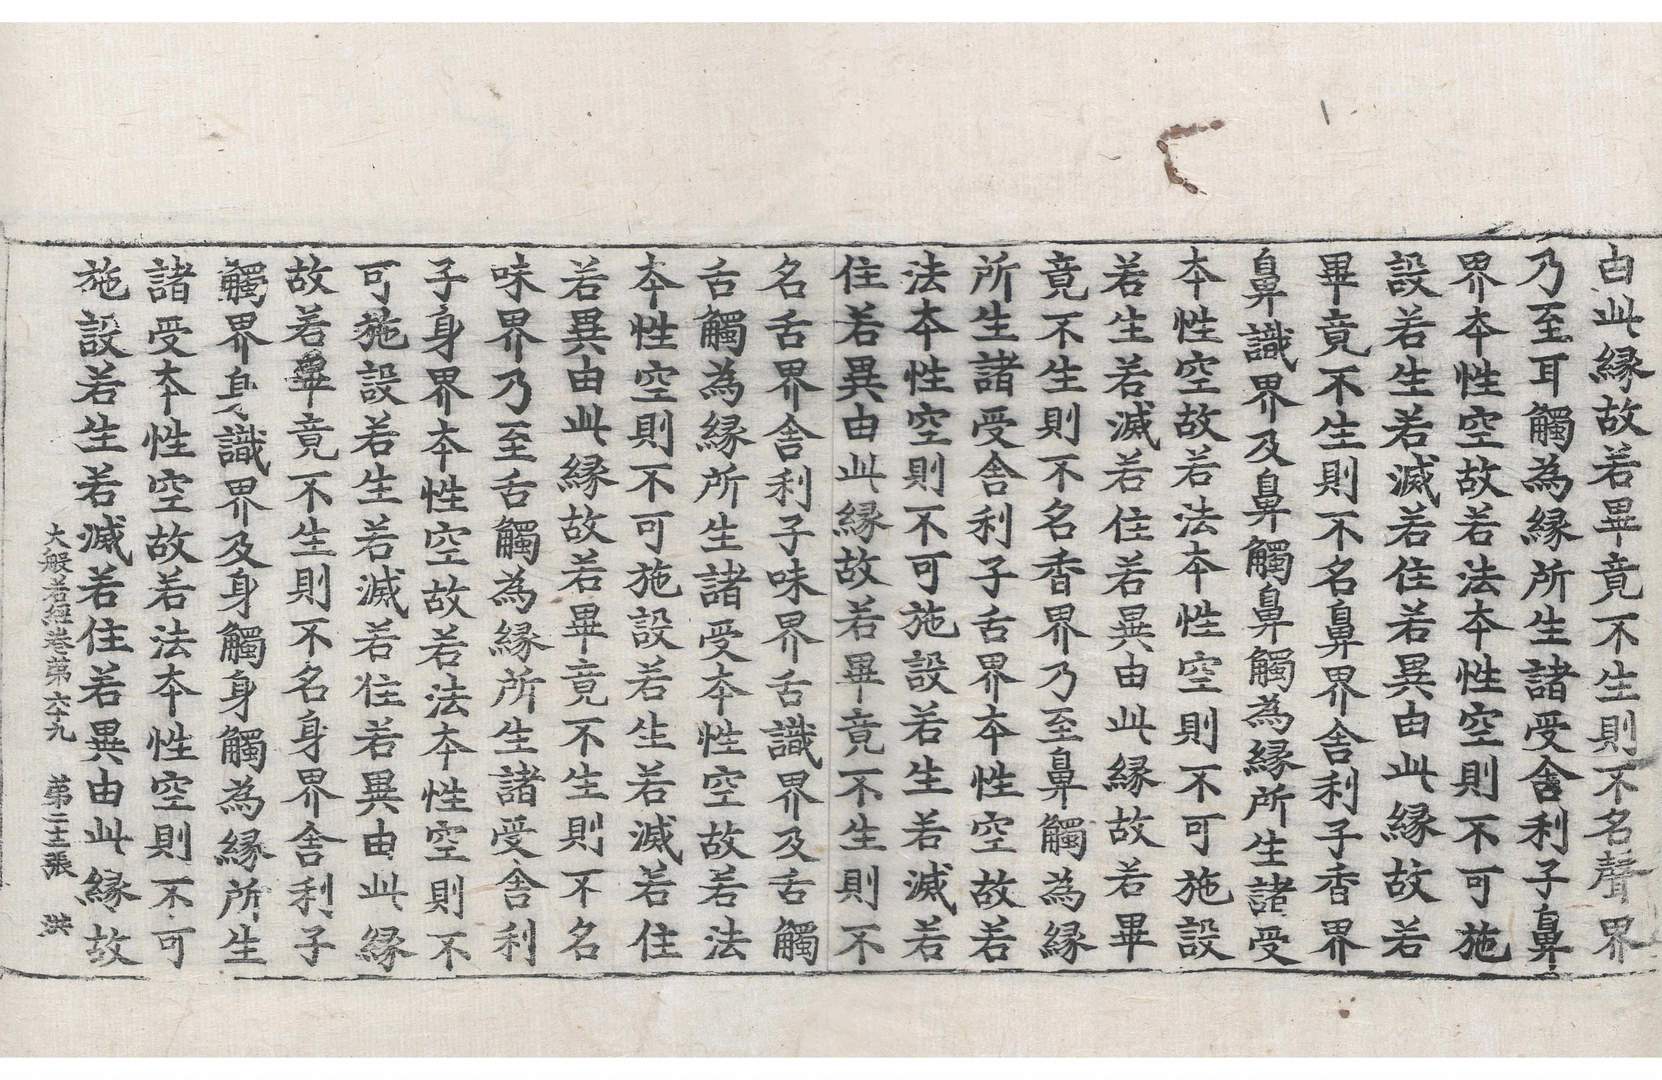 由此縁故若畢竟不生則不名聲界
乃至耳觸為縁所生諸受舍利子鼻
界本性空故若法本性空則不可施
設若生若滅若住若異由此縁故若
畢竟不生則不名鼻界舍利子香界
鼻識界及鼻觸鼻觸為縁所生諸受
本性空故若法本性空則不可施設
若生若滅若住若異由此縁故若畢
竟不生則不名香界乃至鼻觸為縁
所生諸受舍利子舌界本性空故若
法本性空則不可施設若生若滅若
住若異由此縁故若畢竟不生則不
名舌界舍利子味界舌識界及舌觸
舌觸為縁所生諸受本性空故若法
本性空則不可施設若生若滅若住
若異由此縁故若畢竟不生則不名
味界乃至舌觸為縁所生諸受舍利
子身界本性空故若法本性空則不
可施設若生若滅若住若異由此縁
故若畢竟不生則不名身界舍利子
觸界身識界及身觸身觸為縁所生
諸受本性空故若法本性空則不可
施設若生若滅若住若異由此縁故
大般若經巻第六十九　第二十三張　洪